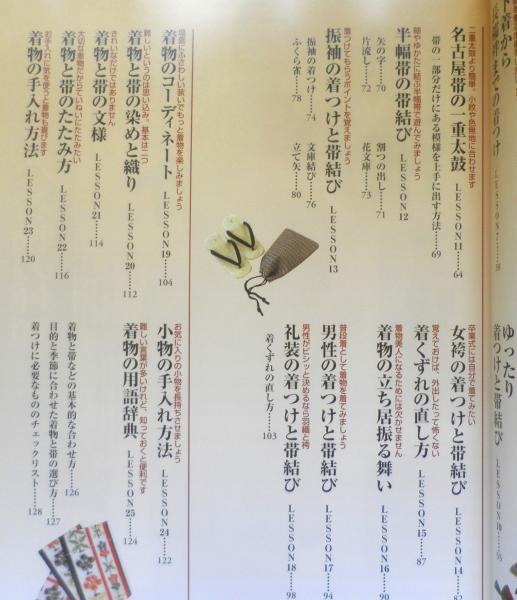 二重太鼓より簡単。小紋や色無地に合わせます
名古屋帯の一重太鼓 LESSON11……64
帯の一部分だけにある模様を上手に出す方法……69
紬やゆかたに結ぶ半幅帯で遊んでみましょう
半幅帯の帯結び LESSON12
矢の字……70
割つの出し……71
片流し……72
花文庫……73
着つけてもらうポイントを覚えましょう
振袖の着つけと帯結び LESSON13
振袖の着つけ……74
文庫結び……76
ふくら雀……78
立て矢……80
場面にふさわしい装いでもっと着物を楽しみましょう
着物のコーディネート LESSON19……104
難しいというのは思い込み。基本は二つ
着物と帯の染めと織り LESSON20……112
きれいなだけではありません
着物と帯の文様 LESSON21……114
大切な着物だからていねいにたたみたい
着物と帯のたたみ方 LESSON22……116
お手入れに気を使うと着物も喜びます
着物の手入れ方法 LESSON23……120
ゆったり
着つけと帯結び
卒業式には自分で着てみたい
女袴の着つけと帯結び LESSON14……82
覚えておけば、外出したって怖くない
着くずれの直し方 LESSON15……87
着物美人になるためには欠かせません
着物の立ち居振る舞い LESSON16……90
普段着として着物を着てみましょう
男性の着つけと帯結び LESSON17……94
男性がビシッと決めるなら羽織と袴
礼装の着つけと帯結び LESSON18……98
着くずれの直し方……103
お気に入りの小物を長持ちさせましょう
小物の手入れ方法 LESSON24……122
難しい言葉が多いけれど、知っておくと便利です
着物の用語辞典 LESSON25……124
着物と帯などの基本的な合わせ方……126
目的と季節に合わせた着物と帯の選び方……127
着つけに必要なもののチェックリスト……128